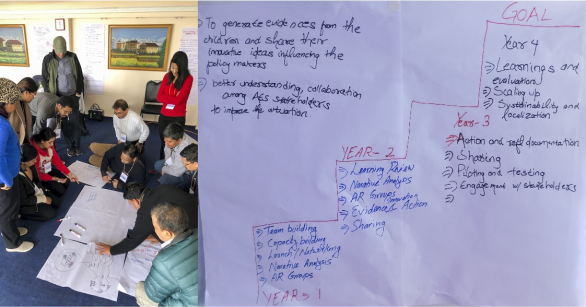 To generate evidences from the
children and share their
innovative ideas influencing the
policy makers
better understanding, collaboration
among AES stakeholders
to improve the situation
GOAL
Year 4
Learnings and
evaluation
Scaling up
Sustainability and
localization
Year-3
Action and self documentation
Sharing
Piloting and testing
Engagement w/ stakeholders
YEAR-2
Learning Review
Narrative Analysis
AR Groups formation
Evidence Action
Sharing
Team building
Capacity building
Launch / Networking
Narrative Analysis
AR Groups
YEAR-1